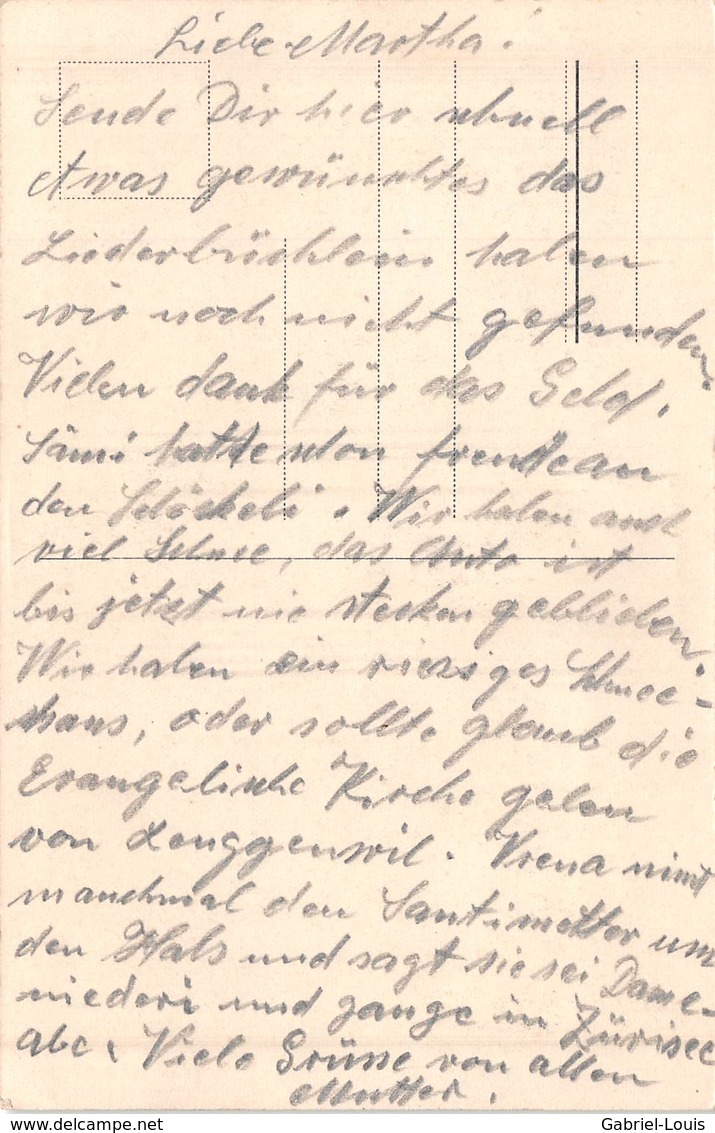 Liebe Martha!
Sende Dir hier schnell
etwas gewünschtes das
Liederbüchlein haben
wir noch nicht gefunden.
Vielen dank für das Geld.
Sämi hatte schon freude an
den Schöckeli. Wir haben auch
viel Schnee, das Auto ist
bis jetzt nie stecken geblieben.
Wir haben ein riesiges Schnee-
haus, oder sollte glaub die
Evangelische Kirche geben
von Lenggenwil. Vrena nimt
manchmal den Santimetter um
den Hals und sagt sie sei Dame-
niederi und gange in Zürisee
abe. Viele Grüsse von allen
Mutter.
Gabriel-Louis